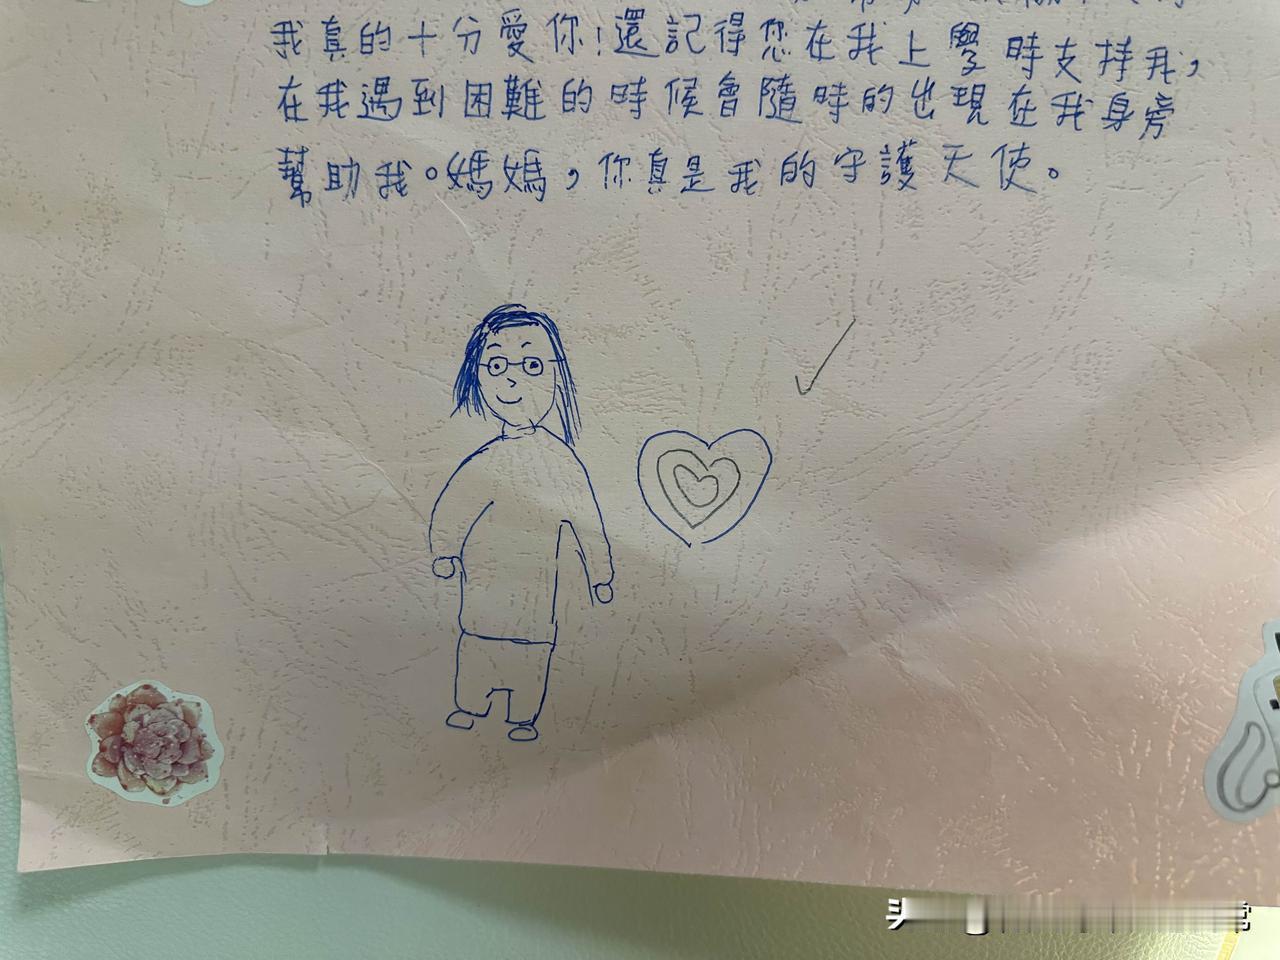 我真的十分愛你!還記得您在我上學時支持我,
在我遇到困難的時候會隨時的出現在我身旁
幫助我。媽媽,你真是我的守護天使。
头